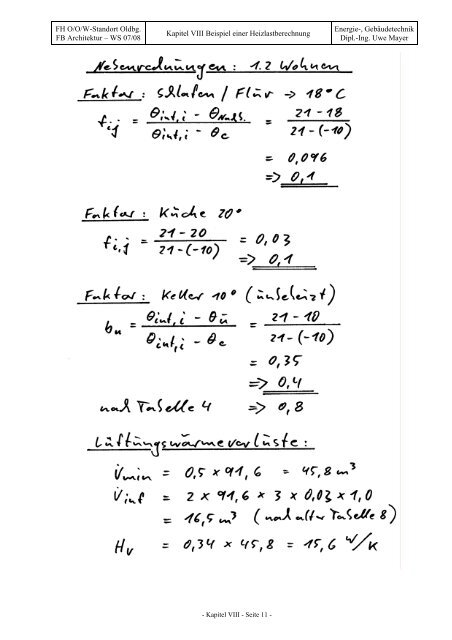 FH O/O/W-Standort Oldbg.
FB Architektur – WS 07/08
Kapitel VIII Beispiel einer Heizlastberechnung
Energie-, Gebäudetechnik
Dipl.-Ing. Uwe Mayer
Nebenrechnungen : 1.2 Wohnen
Faktor : Schlafen / Flur → 18° C
f_ij = (θint,i - θNachb.) / (θint,i - θe) = (21 - 18) / (21 - (-10))
= 0,096
=> 0,1
Faktor : Küche 20°
f_i,j = (21 - 20) / (21 - (-10)) = 0,03
=> 0,1
Faktor : Keller 10° (unbeheizt)
b_u = (θint,i - θu) / (θint,i - θe) = (21 - 10) / (21 - (-10))
= 0,35
=> 0,4
nach Tabelle 4 => 0,8
Lüftungswärmeverluste :
V̇min = 0,5 × 91,6 = 45,8 m³
V̇inf = 2 × 91,6 × 3 × 0,03 × 1,0
= 16,5 m³ (nach alter Tabelle 8)
Hv = 0,34 × 45,8 = 15,6 W/K
- Kapitel VIII - Seite 11 -